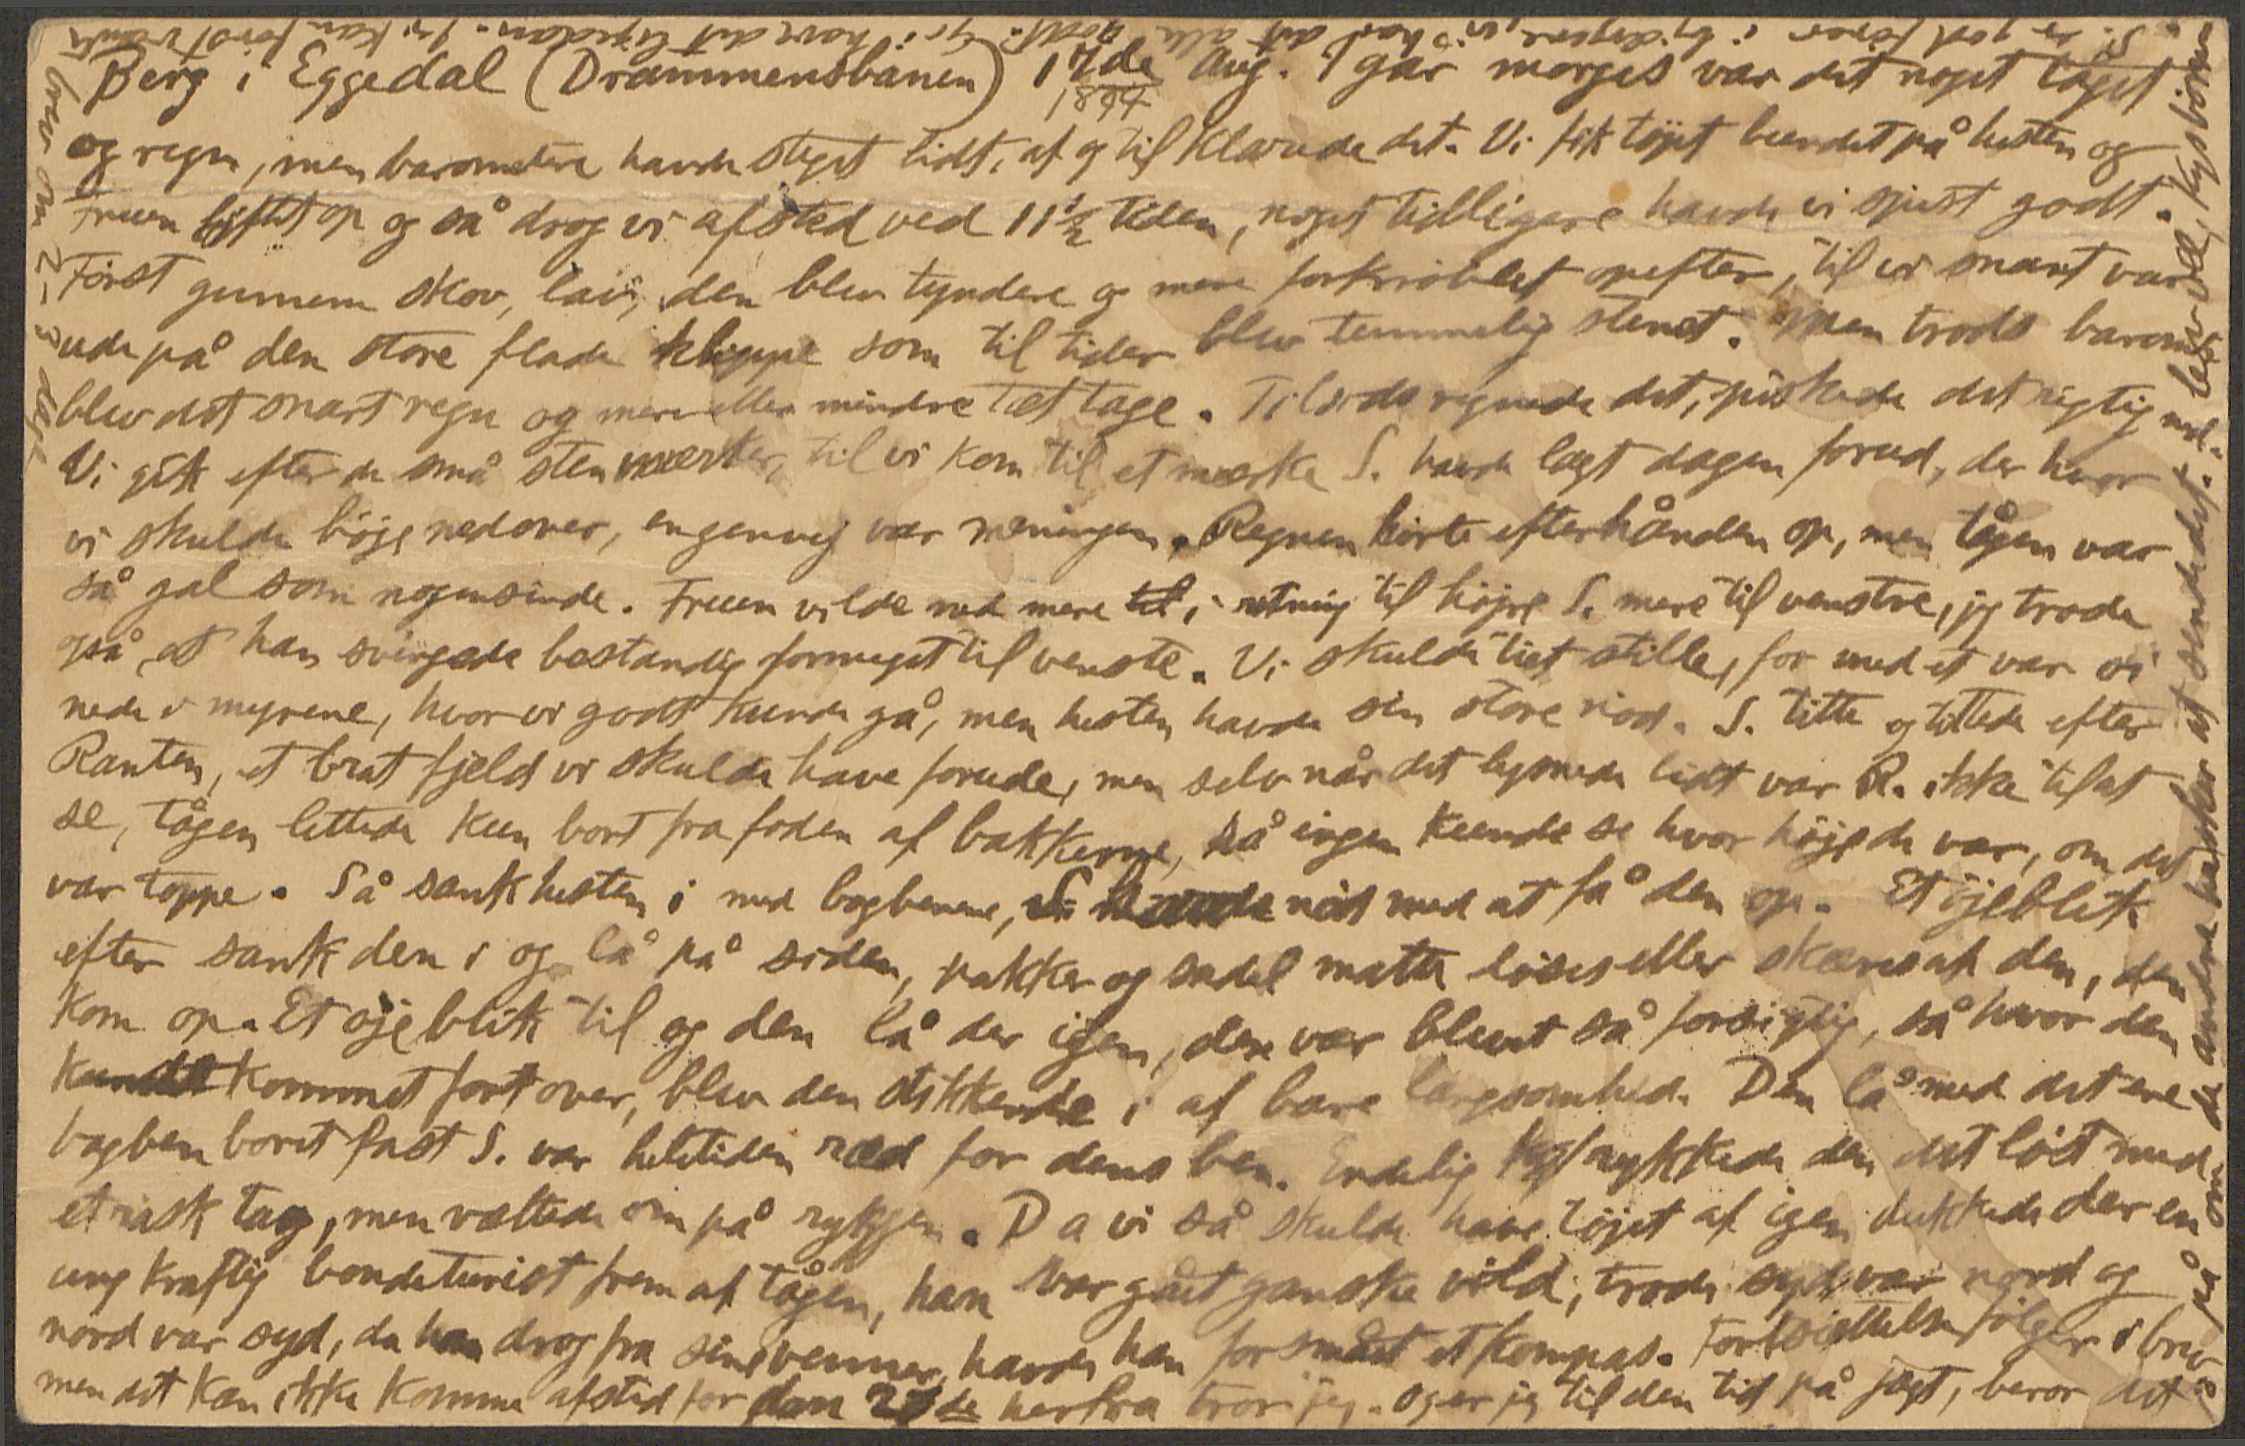 Berg i Eggedal (Drammensbanen) 17de Aug. I går morges var det noget tåget
1894
og regn, men barometeret havde steget lidt, af og til klarede det. Vi fik tøjet bundet på hesten og
Fruen løftet op og så drog vi afsted ved 11½ tiden, noget tidligere havde vi spist godt.
Først gennem skov, lav, den blev tyndere og mere forkrøblet opefter, til vi snart var
ude på den store flade kloppe som til tider blev temmelig stenet. Men trods barom.
blev det snart regn og mere eller mindre tæt tåge. Tilsids regnede det, piskede det rigtig ned.
Vi gik efter de små stenmærker, til vi kom til et mærke S. havde lagt dagen forud, der hvor
vi skulde bøje nedover, en genvej var meningen. Regnen hørte efterhånden op, men tågen var
så gal som nogensinde. Fruen vilde ned mere til i retning til højre S. mere til venstre, jeg trode
også at han svingede bestandig formeget til venste. Vi skulde tiet stille, for med et var vi
nede i myrene, hvor vi godt kunde gå, men hesten havde sin store nød. S. titte og tittede efter
Ranten, et brat fjeld vi skulde have forude, men selv når det lysnede lidt var R. ikke til at
se, tågen lettede kun bort fra foden af bakkerne, så ingen kunde se hvor højede var, om det
var toppe. Så sank hesten i med bagbenene, vi havde nød med at få den op. Et øjeblik
efter sank den i og lå på siden, pakker og sadel måtte løses eller skæres af den, den
kom op. Et øjeblik til og den lå der igen, den var blevet så forsigtig, så hvor den
kunde kommet fort over, blev den stikkende i af bare langsomhed. Den lå med det ene
bagben boret fast S. var heletiden ræd for dens ben. Endelig rykkede den det løst med
et rask tag, men væltede om på ryggen. Da vi så skulde have tøjet af igen dukkede der en
ung kraftig bondeturist frem af tågen, han var gået ganske vild, trode syd var nord og
nord var syd, da han drog fra sine venner, havde han forsmået et kompas. Fortsættelse følger i brev
men det kan ikke komme afsted før den 27de herfra tror jeg. Og er jeg til den tid på jagt, beror det
på om de andre husker at sende det. lev vel, kys børnene
S. er god fører i bygderne, vi har det alle godt. Gr. i have det ligedan. Jeg kan først vente
brev om 2-3 dage